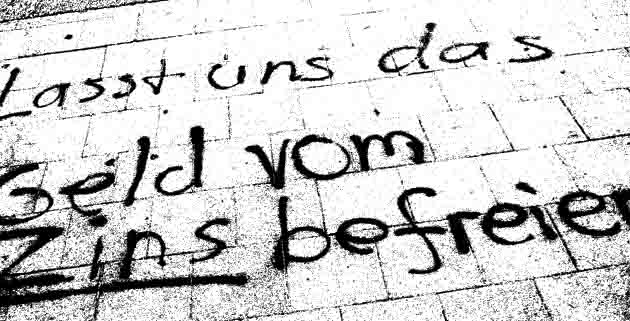 Lasst uns das
Geld vom
Zins befreien